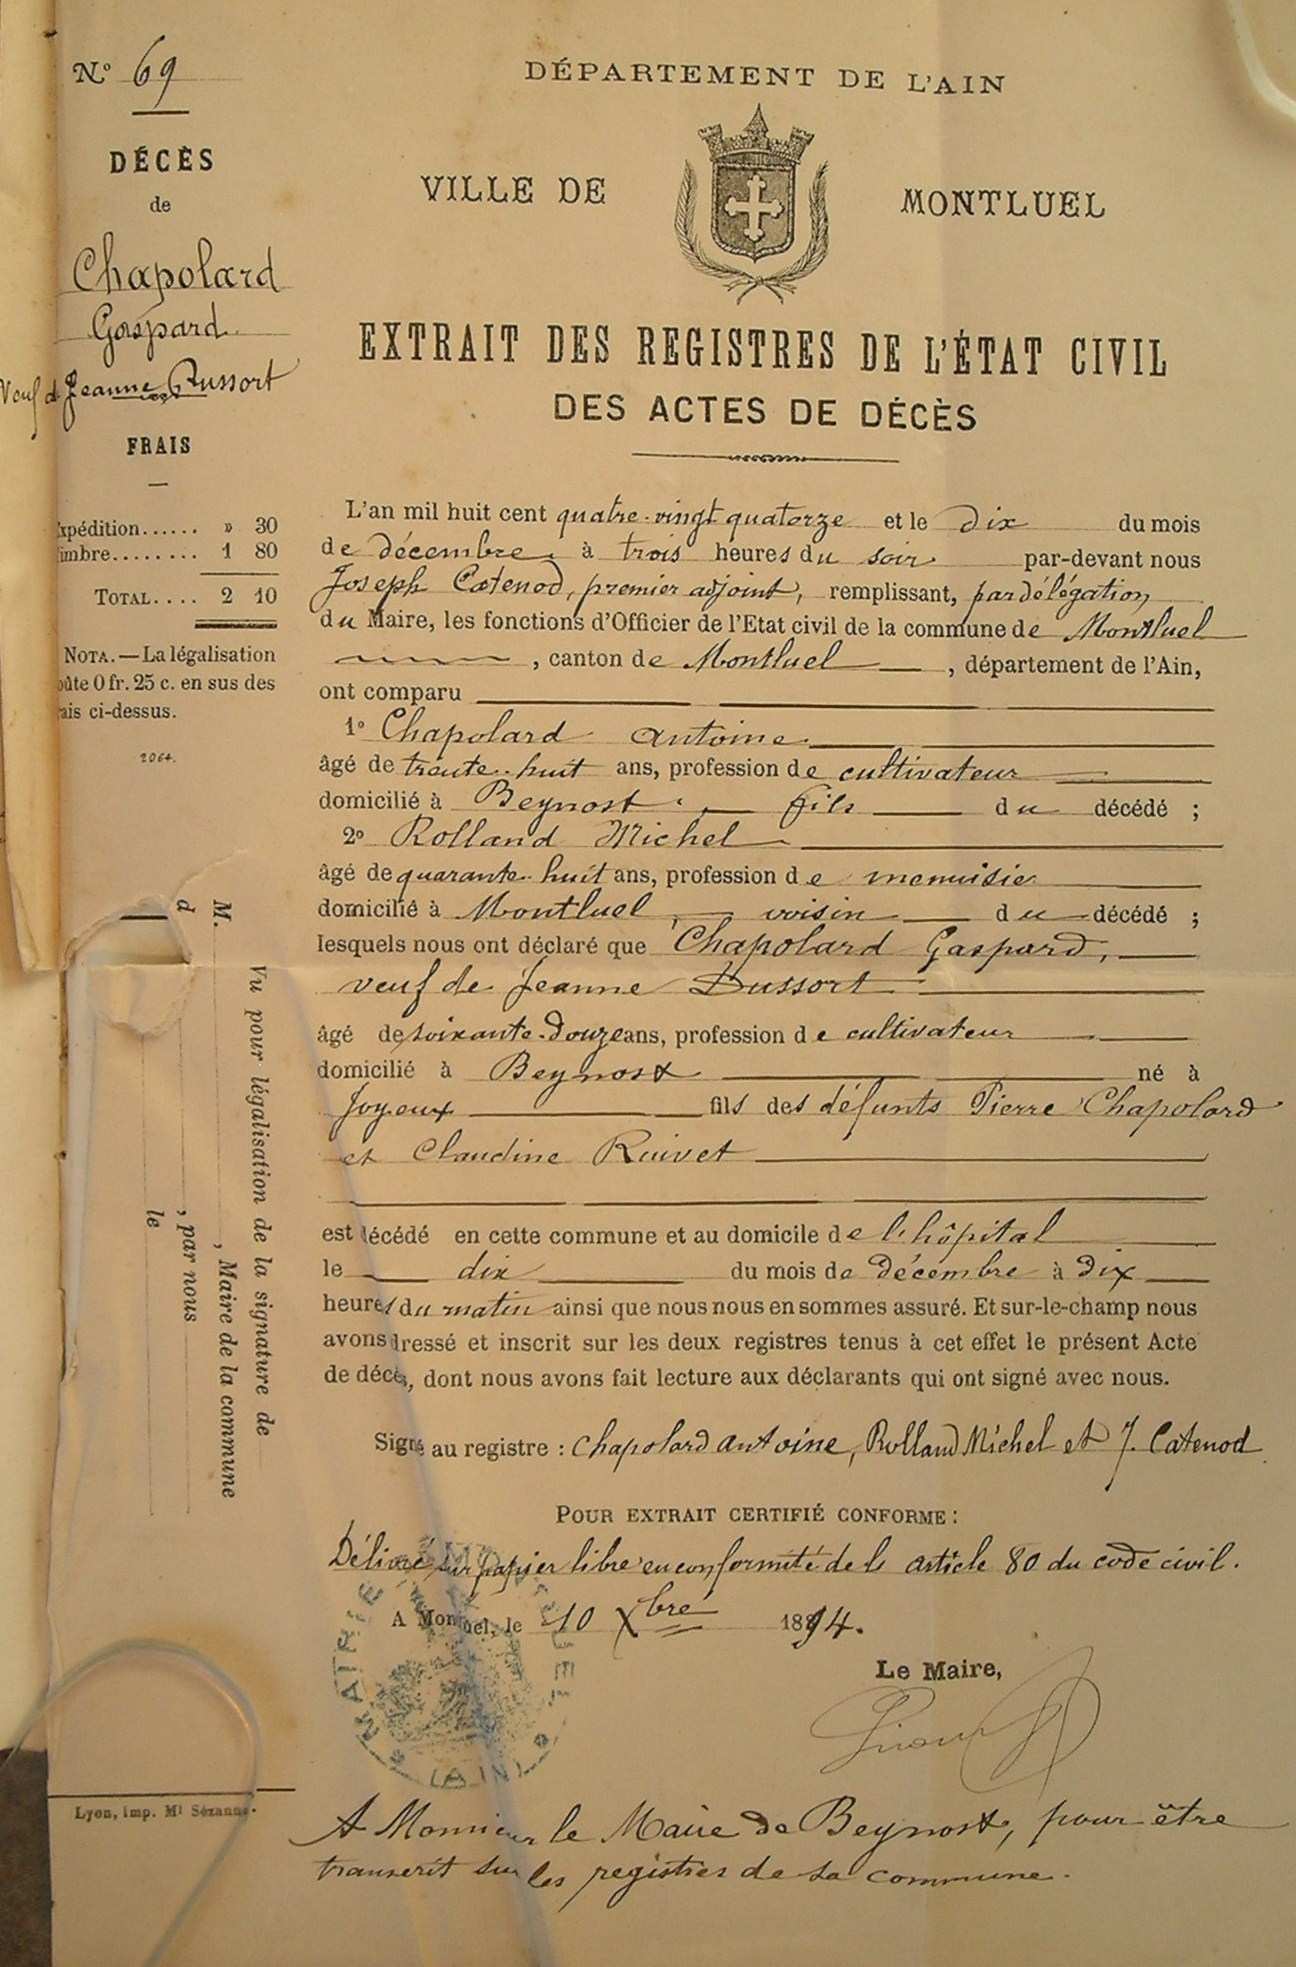 N° 69
DÉCÈS
de
Chapolard
Gaspard
Veuf de Jeanne Dussort
FRAIS
Expédition...... » 30
Timbre........ 1 80
TOTAL.... 2 10
NOTA. — La légalisation
coûte 0 fr. 25 c. en sus des
frais ci-dessus.
2064.
M.
d
Vu pour légalisation de la signature de
, Maire de la commune
, par nous
le
Lyon, imp. Ml Sézanne.
DÉPARTEMENT DE L'AIN
VILLE DE MONTLUEL
EXTRAIT DES REGISTRES DE L'ÉTAT CIVIL
DES ACTES DE DÉCÈS
L'an mil huit cent quatre-vingt quatorze et le dix du mois
de décembre à trois heures du soir par-devant nous
Joseph Catenod, premier adjoint, remplissant, par délégation
du Maire, les fonctions d'Officier de l'Etat civil de la commune de Montluel
, canton de Montluel, département de l'Ain,
ont comparu
1° Chapolard Antoine
âgé de trente-huit ans, profession de cultivateur
domicilié à Beynost, fils du décédé ;
2° Rolland Michel
âgé de quarante-huit ans, profession de menuisier
domicilié à Montluel, voisin du décédé ;
lesquels nous ont déclaré que Chapolard Gaspard,
veuf de Jeanne Dussort
âgé de soixante-douze ans, profession de cultivateur
domicilié à Beynost né à
Joyeux fils des défunts Pierre Chapolard
et Claudine Ruivet
est décédé en cette commune et au domicile de l'hôpital
le dix du mois de décembre à dix
heures du matin ainsi que nous nous en sommes assuré. Et sur-le-champ nous
avons dressé et inscrit sur les deux registres tenus à cet effet le présent Acte
de décès, dont nous avons fait lecture aux déclarants qui ont signé avec nous.
Signé au registre : Chapolard Antoine, Rolland Michel et J. Catenod
POUR EXTRAIT CERTIFIÉ CONFORME :
Délivré sur papier libre en conformité de l'article 80 du code civil.
A Montluel, le 10 Xbre 1894.
Le Maire,
MAIRIE
(AIN)
A Monsieur le Maire de Beynost, pour être
transcrit sur les registres de sa commune.